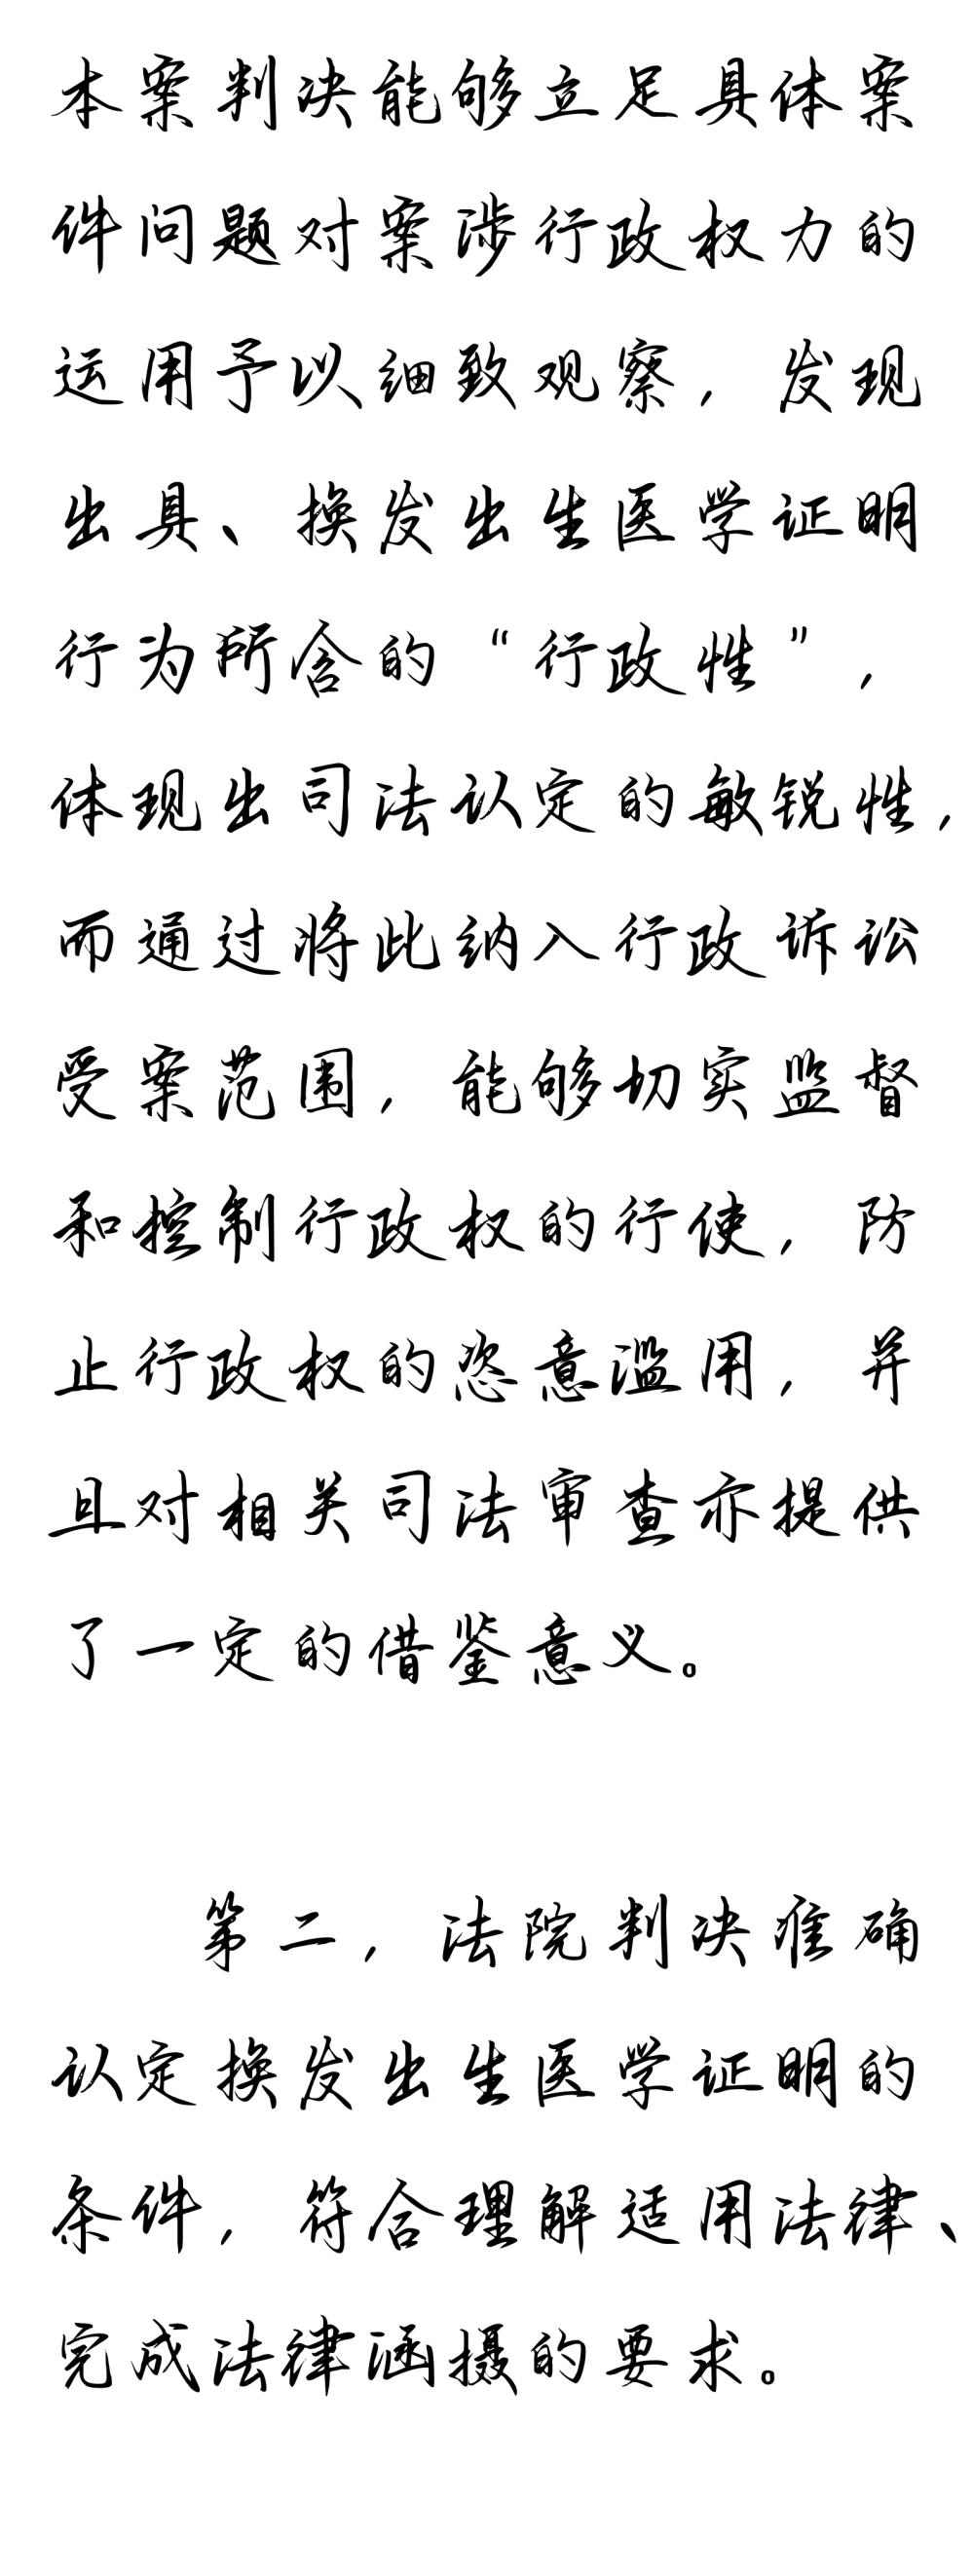 本案判决能够立足具体案
件问题对案涉行政权力的
运用予以细致观察，发现
出具、换发出生医学证明
行为所含的“行政性”，
体现出司法认定的敏锐性，
而通过将此纳入行政诉讼
受案范围，能够切实监督
和控制行政权的行使，防
止行政权的恣意滥用，并
且对相关司法审查亦提供
了一定的借鉴意义。
第二，法院判决准确
认定换发出生医学证明的
条件，符合理解适用法律、
完成法律涵摄的要求。